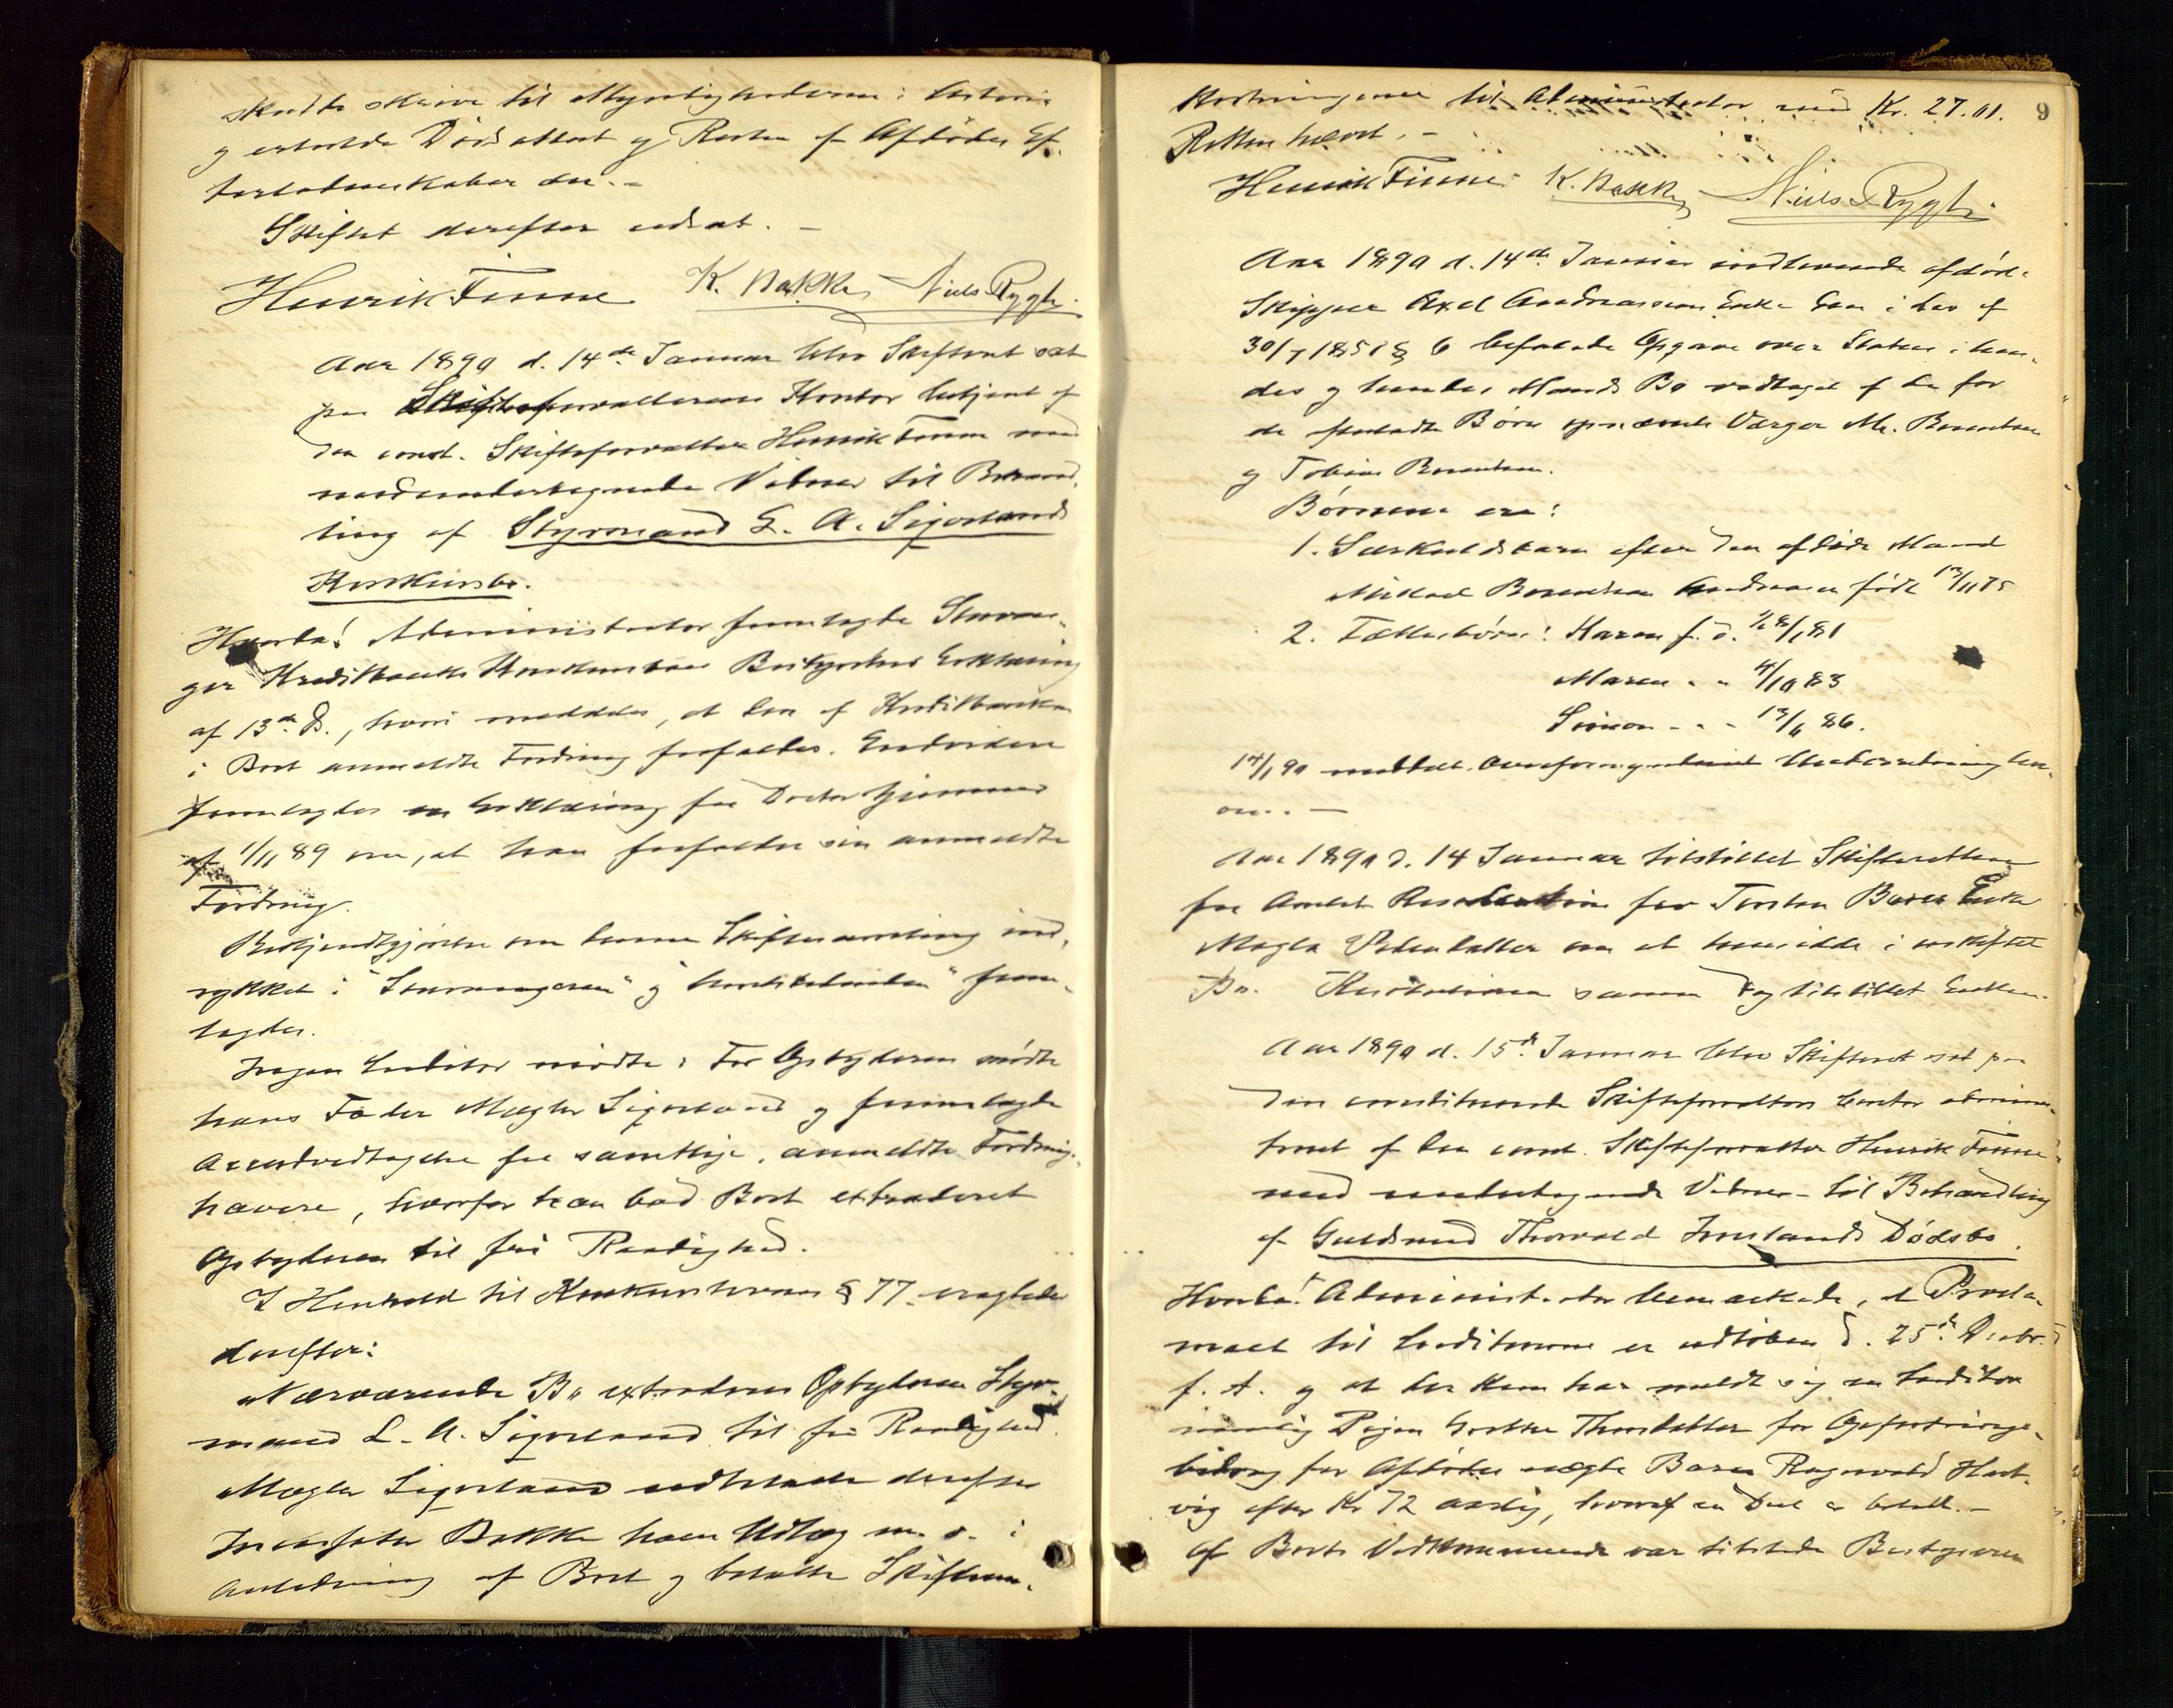 skulde skrive til Myndighederne i Astoria
og erholde Dødsattest og Resten af Afdødes Ef-
terladenskaber der. -
Skiftet derefter udsat. -
Henrik Finne K. Bakke Niels Rygh.
Aar 1890 d. 14de Januar blev Skifteret sat
paa Skifteforvalterens Kontor betjent af
den const. Skifteforvalter Henrik Finne med
medundertegnede Vidner til Behand-
ling af Styrmand L. A. Sigvelands
Konkursbo.
Hvorda! Administrator fremlagde Stavan-
ger Kreditbanks Konkursboes Bestyrelses Erklæring
af 13de ds., hvori meddeles, at den af Kreditbanken
i Boet anmeldte Fordring frafaldes. Endvidere
fremlagdes en Erklæring fra Doctor
af 1/11 89 om, at han frafalder sin anmeldte
Fordring.
Bekjendtgjørelse om denne Skiftesamling ind-
rykket i "Stavangeren" og "Kreditoridende" frem-
lagdes.
Ingen Creditor mødte. For Opbyderen mødte
hans Fader Mægler Sigveland og fremlagde
Accordvedtagelse fra samtlige anmeldte Fordrings-
havere, hvorfor han bad Boet extraderet
Opbyderen til fri Raadighed.
I Henhold til Konkurslovens § 77 eragtedes
derefter:
Nærværende Bo extraderes Opbyderen Styr-
mand L. A. Sigveland til fri Raadighed.
Mægler Sigveland udbetalte derefter
Incassator Bakke hans Udlæg m. v. i
Anledning af Boet og betalte Skifteom-
9
kostningerne til Administrator med Kr. 27.01.
Retten hævet. -
Henrik Finne K. Bakke Niels Rygh.
Aar 1890 d. 14de Januar indleverede afdød-
Skipper Axel Andreassens Enke den i Lov af
30/7 1851 § 6 befalede Opgave over Status i hen-
des og hendes Mands Bo vedtaget af de for
de efterladte Børn opnævnte Værger M. Berentsen
og Tobias Berentsen.
Børnene ere:
1. Særkuldsbarn efter den afdøde Mand
Mikael Berentsen Andreasen født 13/11 75
2. Fællesbørn: Karen f. d. 28/1 81
Maren " " 4/10 83
Simon " " 13/6 86.
14/1 90 meddelt Overformynderiet Underretning her-
om. -
Aar 1890 d. 14 Januar tilstillet Skifteretten
fra Amtet Resolution for Torsten Enke
Magla Pedersdatter om at hensidde i uskiftet
Bo. Resolutionen samme Dag tilstillet Enken.
Aar 1890 d. 15de Januar blev Skifteret sat paa
den constituerede Skifteforvalters Contor admini-
streret af den const. Skifteforvalter Henrik Finne
med undertegnede Vidner - til Behandling
af Guldsmed Thorvald Imslands Dødsbo.
Hvorda! Administrator bemærkede, at Procla-
maet til Creditorerne er udløben d. 25de Decbr.
f. A. og at der kun har meldt sig en Creditor
nemlig Pigen Thorsdatter for Opfostrings-
bidrag for Afdødes uægte Barn Ragnvald Hart-
vig efter Kr 72 aarlig, hvoraf en Deel er betalt. -
Af Boets Vedkommende var tilstede Bestyreren